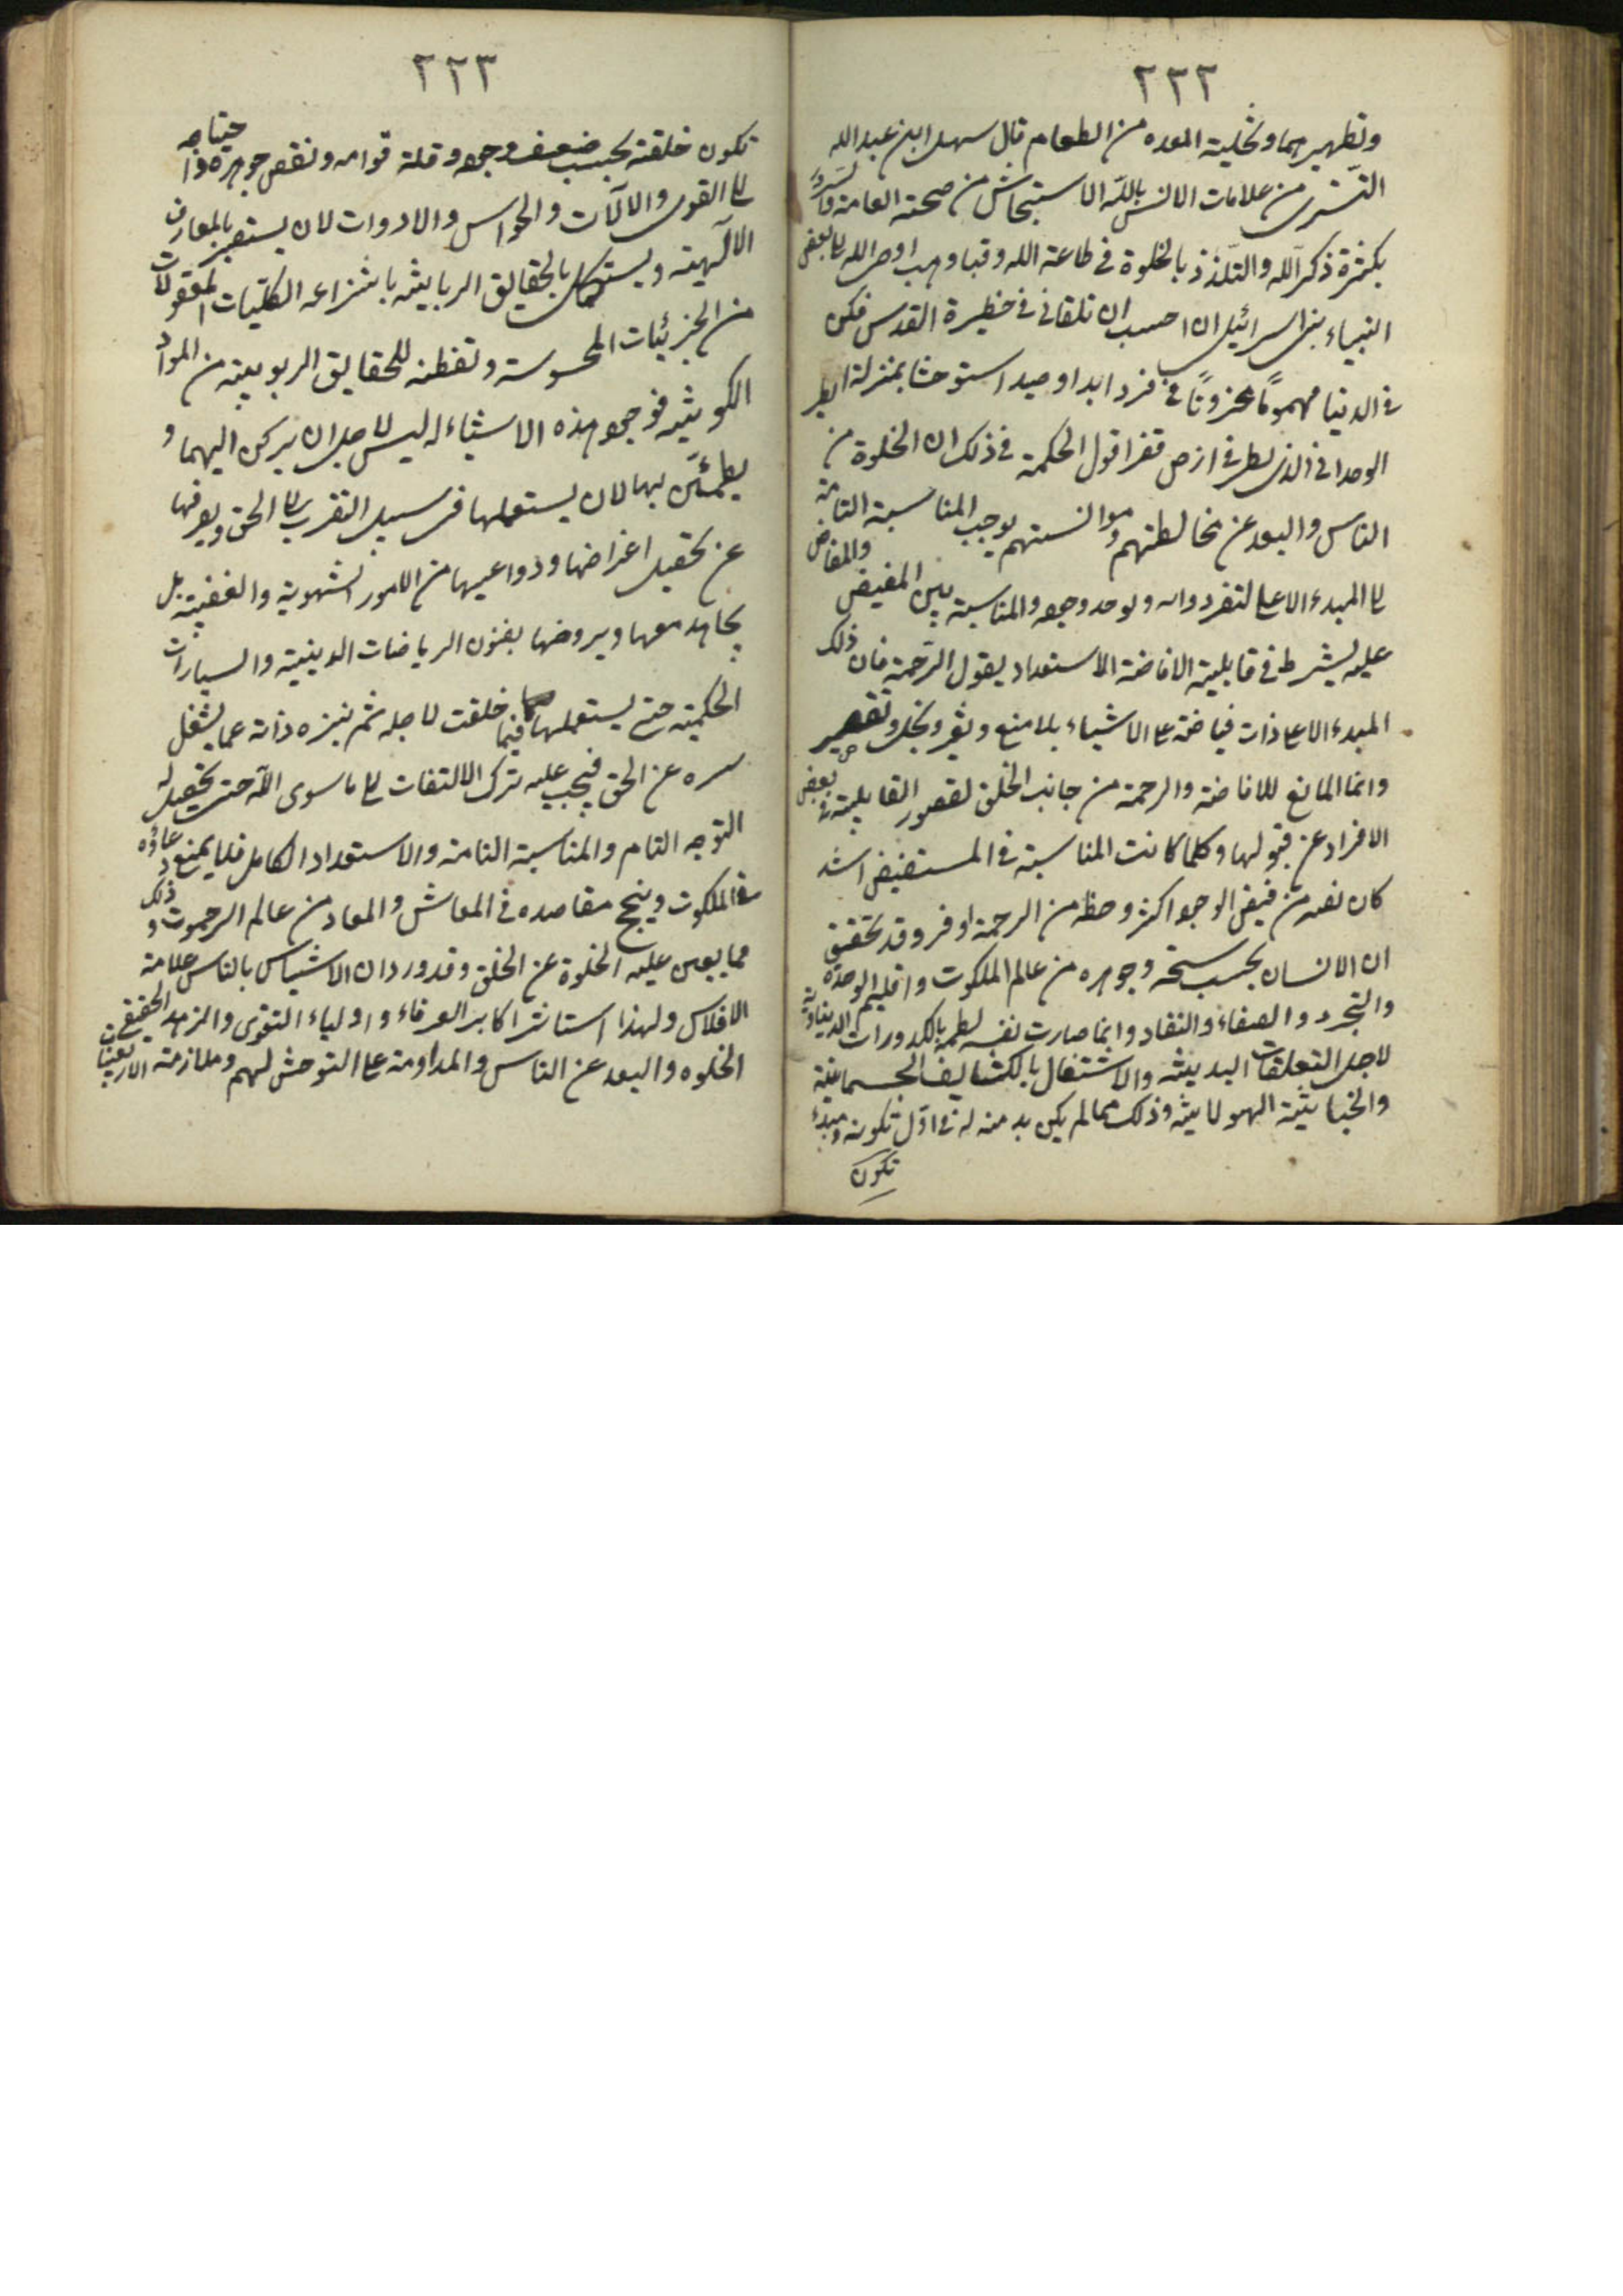 ٢٢٢
وتطهيرهما وتخلية المعده من الطعام قال سهل ابن عبدالله
التّسترى من علامات الانس باللّه الاستيحاش من صحبته العامة
بكثرة ذكر اللّه والتلّذذ بالخلوة فى طاعة اللّه اوحى اللّه الى بعض
انبياء بنى اسرائيل ان احببت ان تلقانى فى حظيرة القدس فكن
فى الدنيا مهمومًا محزونًا فردا ابدا وحيدا مستوحشا بمنزلة الطير
الوحدانى الذى يطير فى ارض قفر اقول الحكمة فى ذلك ان الخلوة من
الناس والبعد عن مخالطتهم وموانستهم يوجب المناسبة التامة
الى المبدء الاعلى لتفرد ذاته وتوحد وجوده والمناسبة بين المفيض والمفاض
عليه يشرط فى قابلية الافاضة والاستعداد لقبول الرّحمة فان ذلك
المبدء الاعلى ذات فياضة على الاشياء بلا منع وبخل وتقصير
وانما المانع للافاضة والرحمة من جانب الخلق لقصور القابلية فى بعض
الافراد عن قبولها وكلما كانت المناسبة فى المستفيض اشد
كان نصيبه من فيض الوجود اكثر وحظه من الرحمة اوفر وقد تحقق
ان الانسان بحسب سنخه وجوهره من عالم الملكوت واقليم الوحدة
والتجرد والصفاء والنقاء وانما صارت نفسه بالكدورات الدنياوية
لاجل التعلقات البدنيّة والاشتغال بالكثايف الجسمانيّة
والخباثية الهيولانية وذلك مما لم يكن بد منه له فى اوّل تكونه ومبدء
تكون
٢٢٣
تكون خلقته بحسب ضعف وجوده وقلة قوامه ونقص جوهره واحتياجه
الى القوى والآلات والحواس والادوات لان يستبصر بالمعارف
الالٓهية ويستكمل بالحقايق الربانيّة بانتزاعه الكليّات المعقولات
من الجزئيات المحسوسة وتفطنه للحقايق الربوبيّة من المواد
الكونيّة فوجود هذه الاشياء له ليس لاجل ان يركن اليها و
يطمئنّ بها لان يستعملها فى سبيل التقرب الى الحق ويصرفها
عن تحصيل اغراضها ودواعيها من الامور الشهوية والغضبيّة بل
يجاهد معها ويروضها بفنون الرياضات الدينيّة والسياسات
الحكميّة حتى يستعملها فيما خلقت لاجله ثم ينزه ذاته عما يشغل
سره عن الحق فيجب عليه ترك الالتفات الى ما سوى اللّه حتى يحصل له
التوجه التام والمناسبة التامة والاستعداد الكامل فلا يمنع دعاؤه
فى الملكوت وينجح مقاصده فى المعاش والمعاد من عالم الرحموت وذلك
مما يعين عليه الخلوة عن الخلق وقد ورد ان الاستيناس بالناس علامة
الافلاس ولهذا استاثر اكابر العرفاء واولياء التقوى والزهد الحقيقى
الخلوه والبعد عن الناس والمداومة على التوحش لهم وملازمة الاربعينات